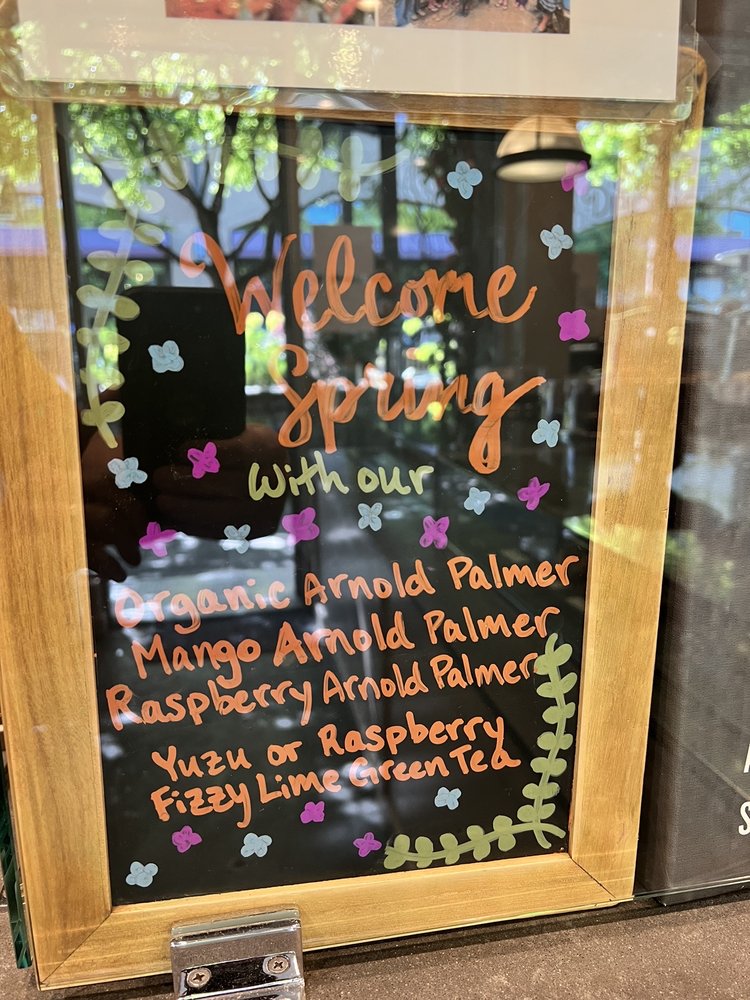 Welcome
Spring
with our
Organic Arnold Palmer
Mango Arnold Palmer
Raspberry Arnold Palmer
Yuzu or Raspberry
Fizzy Lime Green Tea